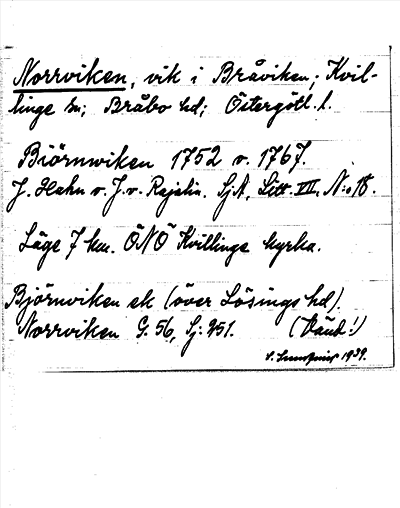 Norrviken, vik i Bråviken; Kvil-
linge sn; Bråbo hd; Östergötl. l.
Biörnwiken 1752 o. 1767.
J. Hahn o. J. v. Rajalin. Sj.A. Litt. VII, N:o 18.
Läge 7 km. ÖNÖ Kvillinge kyrka.
Björnviken ek (över Lösings hd).
Norrviken G. 56, Sj. 251. (Vänd!)
1939.